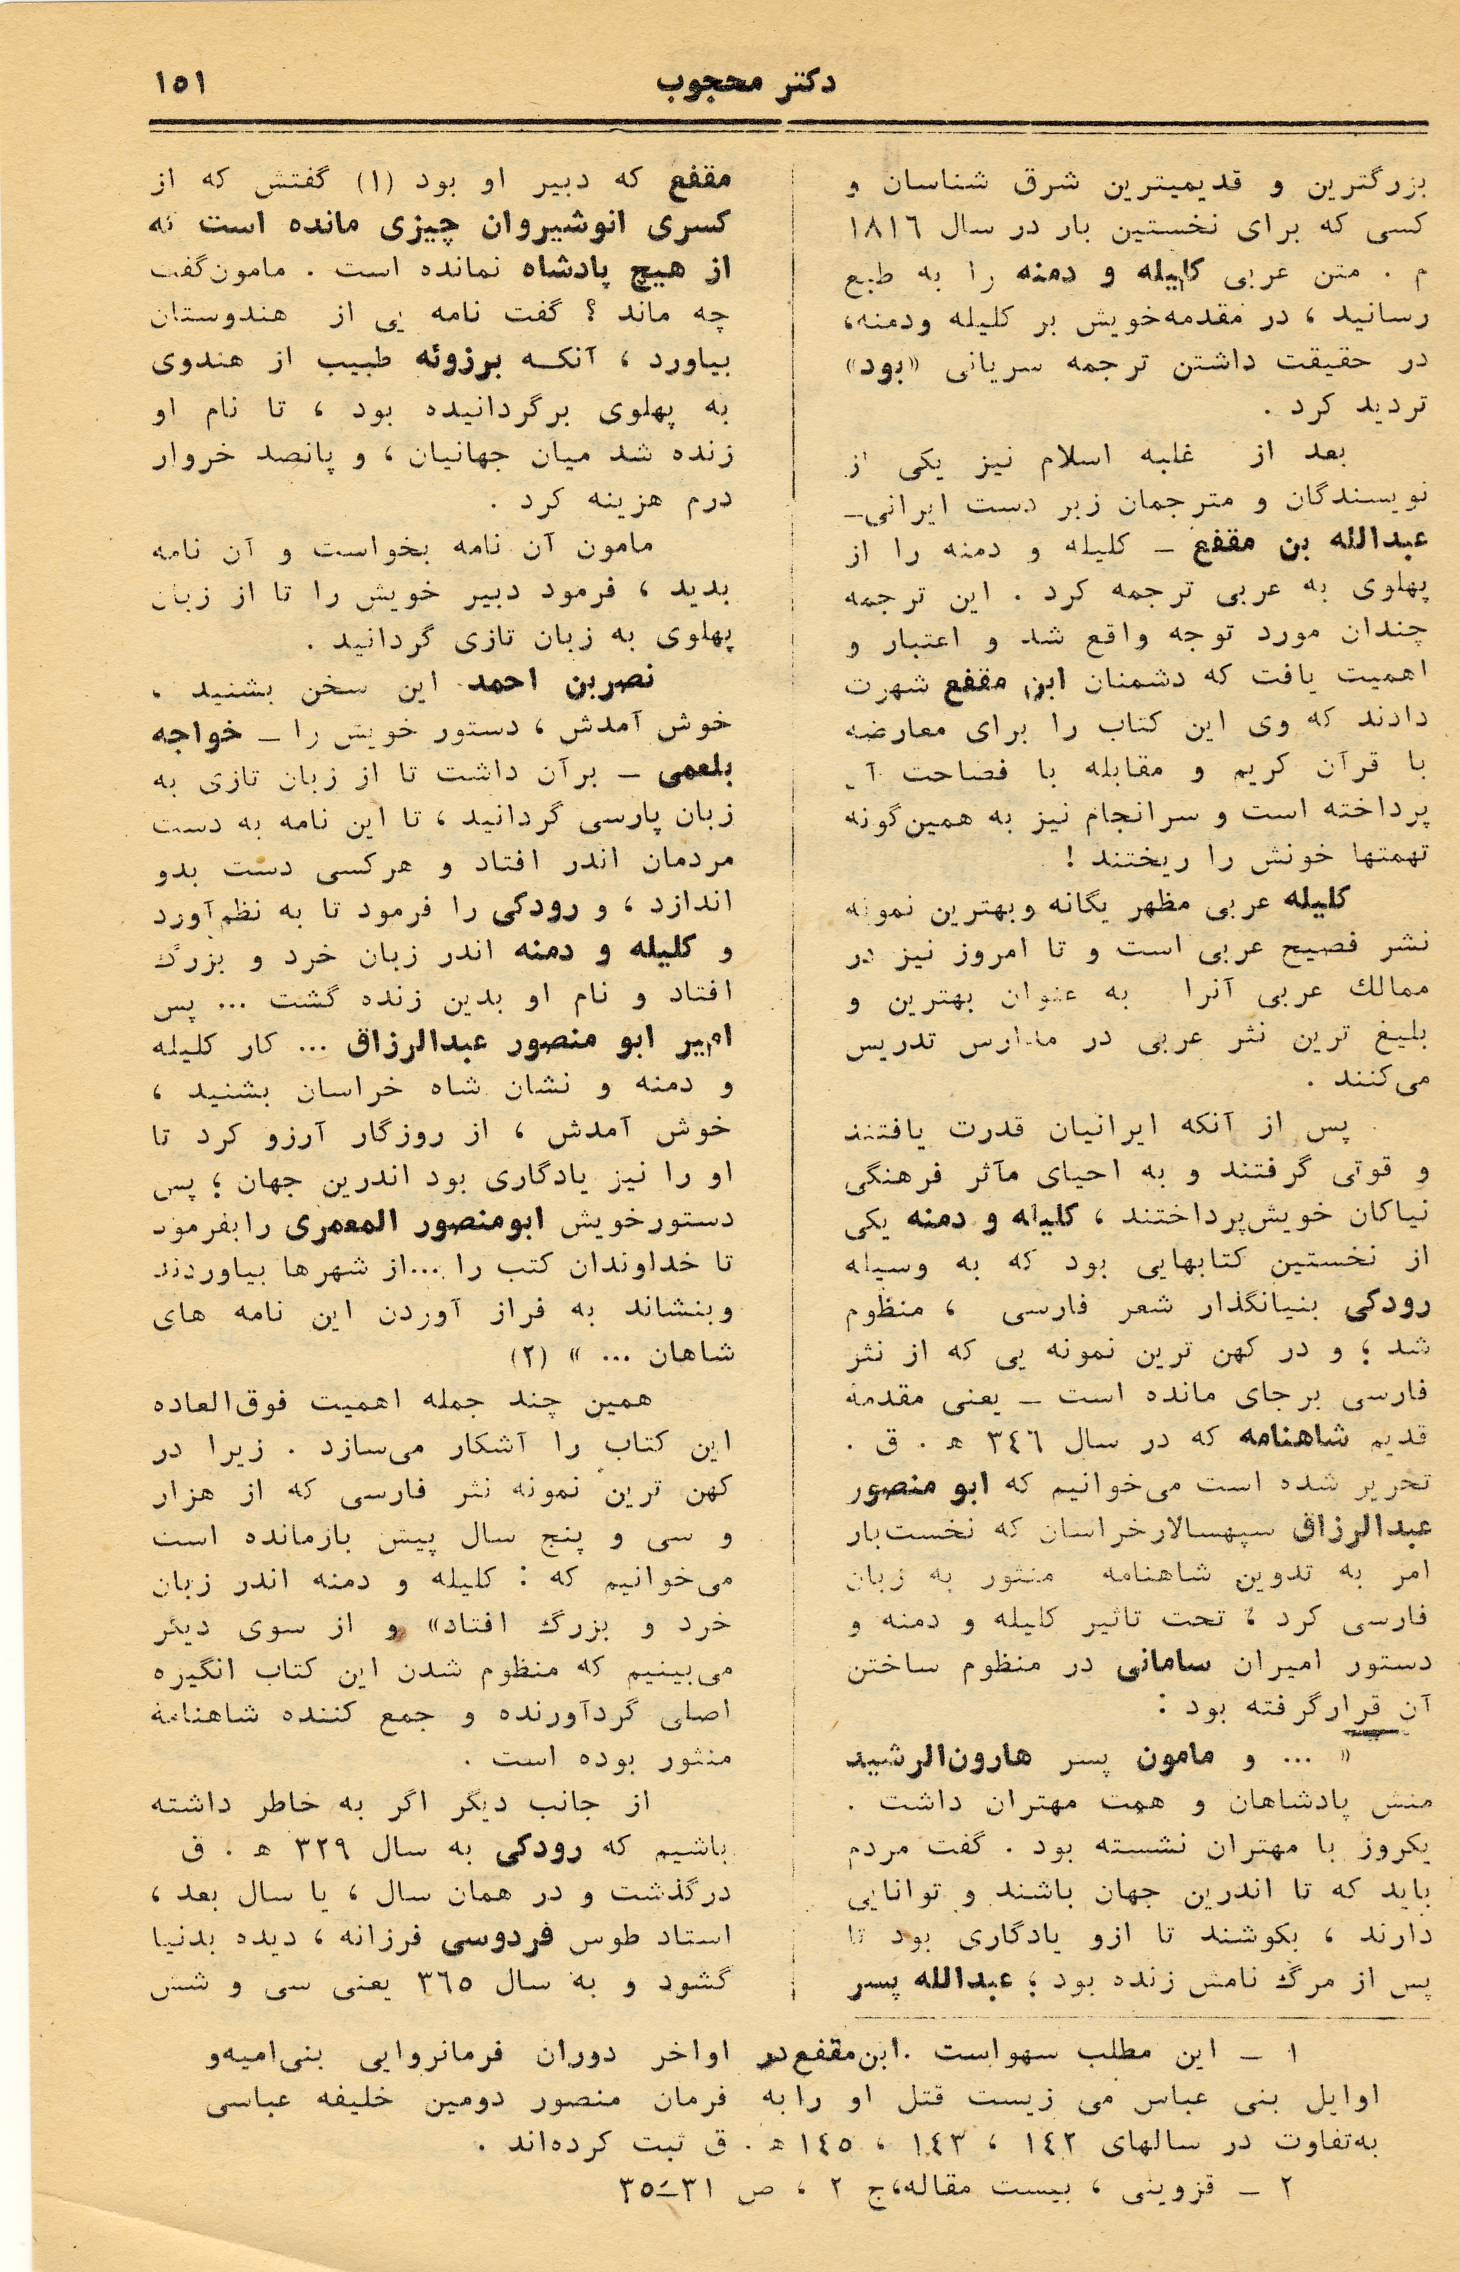 دکتر محجوب
١٥١
بزرگترین و قدیمیترین شرق شناسان و
کسی که برای نخستین بار در سال ١٨١٦
م . متن عربی کلیله و دمنه را به طبع
رسانید ، در مقدمه‌خویش بر کلیله ودمنه،
در حقیقت داشتن ترجمه سریانی «بود»
تردید کرد .
بعد از غلبه اسلام نیز یکی از
نویسندگان و مترجمان زبر دست ایرانی–
عبدالله بن مقفع – کلیله و دمنه را از
پهلوی به عربی ترجمه کرد . این ترجمه
چندان مورد توجه واقع شد و اعتبار و
اهمیت یافت که دشمنان ابن مقفع شهرت
دادند که وی این کتاب را برای معارضه
با قرآن کریم و مقابله با فصاحت آن
پرداخته است و سرانجام نیز به همین‌گونه
تهمتها خونش را ریختند !
کلیله عربی مظهر یگانه وبهترین نمونه
نشر فصیح عربی است و تا امروز نیز در
ممالك عربی آنرا به عنوان بهترین و
بلیغ ترین نثر عربی در مدارس تدریس
می‌کنند .
پس از آنکه ایرانیان قدرت یافتند
و قوتی گرفتند و به احیای مآثر فرهنگی
نیاکان خویش‌پرداختند ، کلیله و دمنه یکی
از نخستین کتابهایی بود که به وسیله
رودکی بنیانگذار شعر فارسی ، منظوم
شد ؛ و در کهن ترین نمونه یی که از نثر
فارسی برجای مانده است – یعنی مقدمهٔ
قدیم شاهنامه که در سال ٣٤٦ ه . ق .
تحریر شده است می‌خوانیم که ابو منصور
عبدالرزاق سپهسالارخراسان که نخست‌بار
امر به تدوین شاهنامه منثور به زبان
فارسی کرد ، تحت تاثیر کلیله و دمنه و
دستور امیران سامانی در منظوم ساختن
آن قرارگرفته بود :
« ... و مامون پسر هارون‌الرشید
منش پادشاهان و همت مهتران داشت .
یکروز با مهتران نشسته بود . گفت مردم
باید که تا اندرین جهان باشند و توانایی
دارند ، بکوشند تا ازو یادگاری بود تا
پس از مرگ نامش زنده بود ؛ عبدالله پسر
مقفع که دبیر او بود (١) گفتش که از
کسری انوشیروان چیزی مانده است که
از هیچ پادشاه نمانده است . مامون‌گفت
چه ماند ؟ گفت نامه یی از هندوستان
بیاورد ، آنکه برزوئه طبیب از هندوی
به پهلوی برگردانیده بود ، تا نام او
زنده شد میان جهانیان ، و پانصد خروار
درم هزینه کرد .
مامون آن نامه بخواست و آن نامه
بدید ، فرمود دبیر خویش را تا از زبان
پهلوی به زبان تازی گردانید .
نصربن احمد این سخن بشنید ،
خوش آمدش ، دستور خویش را – خواجه
بلعمی – برآن داشت تا از زبان تازی به
زبان پارسی گردانید ، تا این نامه به دست
مردمان اندر افتاد و هرکسی دست بدو
اندازد ، و رودکی را فرمود تا به نظم‌آورد
و کلیله و دمنه اندر زبان خرد و بزرگ
افتاد و نام او بدین زنده گشت ... پس
امیر ابو منصور عبدالرزاق ... کار کلیله
و دمنه و نشان شاه خراسان بشنید ،
خوش آمدش ، از روزگار آرزو کرد تا
او را نیز یادگاری بود اندرین جهان ؛ پس
دستورخویش ابومنصور المعمری رابفرمود
تا خداوندان کتب را ...از شهرها بیاوردند
وبنشاند به فراز آوردن این نامه های
شاهان ... » (٢)
همین چند جمله اهمیت فوق‌العاده
این کتاب را آشکار می‌سازد . زیرا در
کهن ترین نمونه نثر فارسی که از هزار
و سی و پنج سال پیش بازمانده است
می‌خوانیم که : کلیله و دمنه اندر زبان
خرد و بزرگ افتاد» و از سوی دیگر
می‌بینیم که منظوم شدن این کتاب انگیره
اصلی گردآورنده و جمع کننده شاهنامهٔ
منثور بوده است .
از جانب دیگر اگر به خاطر داشته
باشیم که رودکی به سال ٣٢٩ ه . ق
درگذشت و در همان سال ، یا سال بعد ،
استاد طوس فردوسی فرزانه ، دیده بدنیا
گشود و به سال ٣٦٥ یعنی سی و شش
١ – این مطلب سهواست .ابن‌مقفع‌در اواخر دوران فرمانروایی بنی‌امیه‌و
اوایل بنی عباس می زیست قتل او رابه فرمان منصور دومین خلیفه عباسی
به‌تفاوت در سالهای ١٤٢ ، ١٤٣ ، ١٤٥ ه . ق ثبت کرده‌اند .
٢ – قزوینی ، بیست مقاله،ج ٢ ، ص ٣١–٣٥